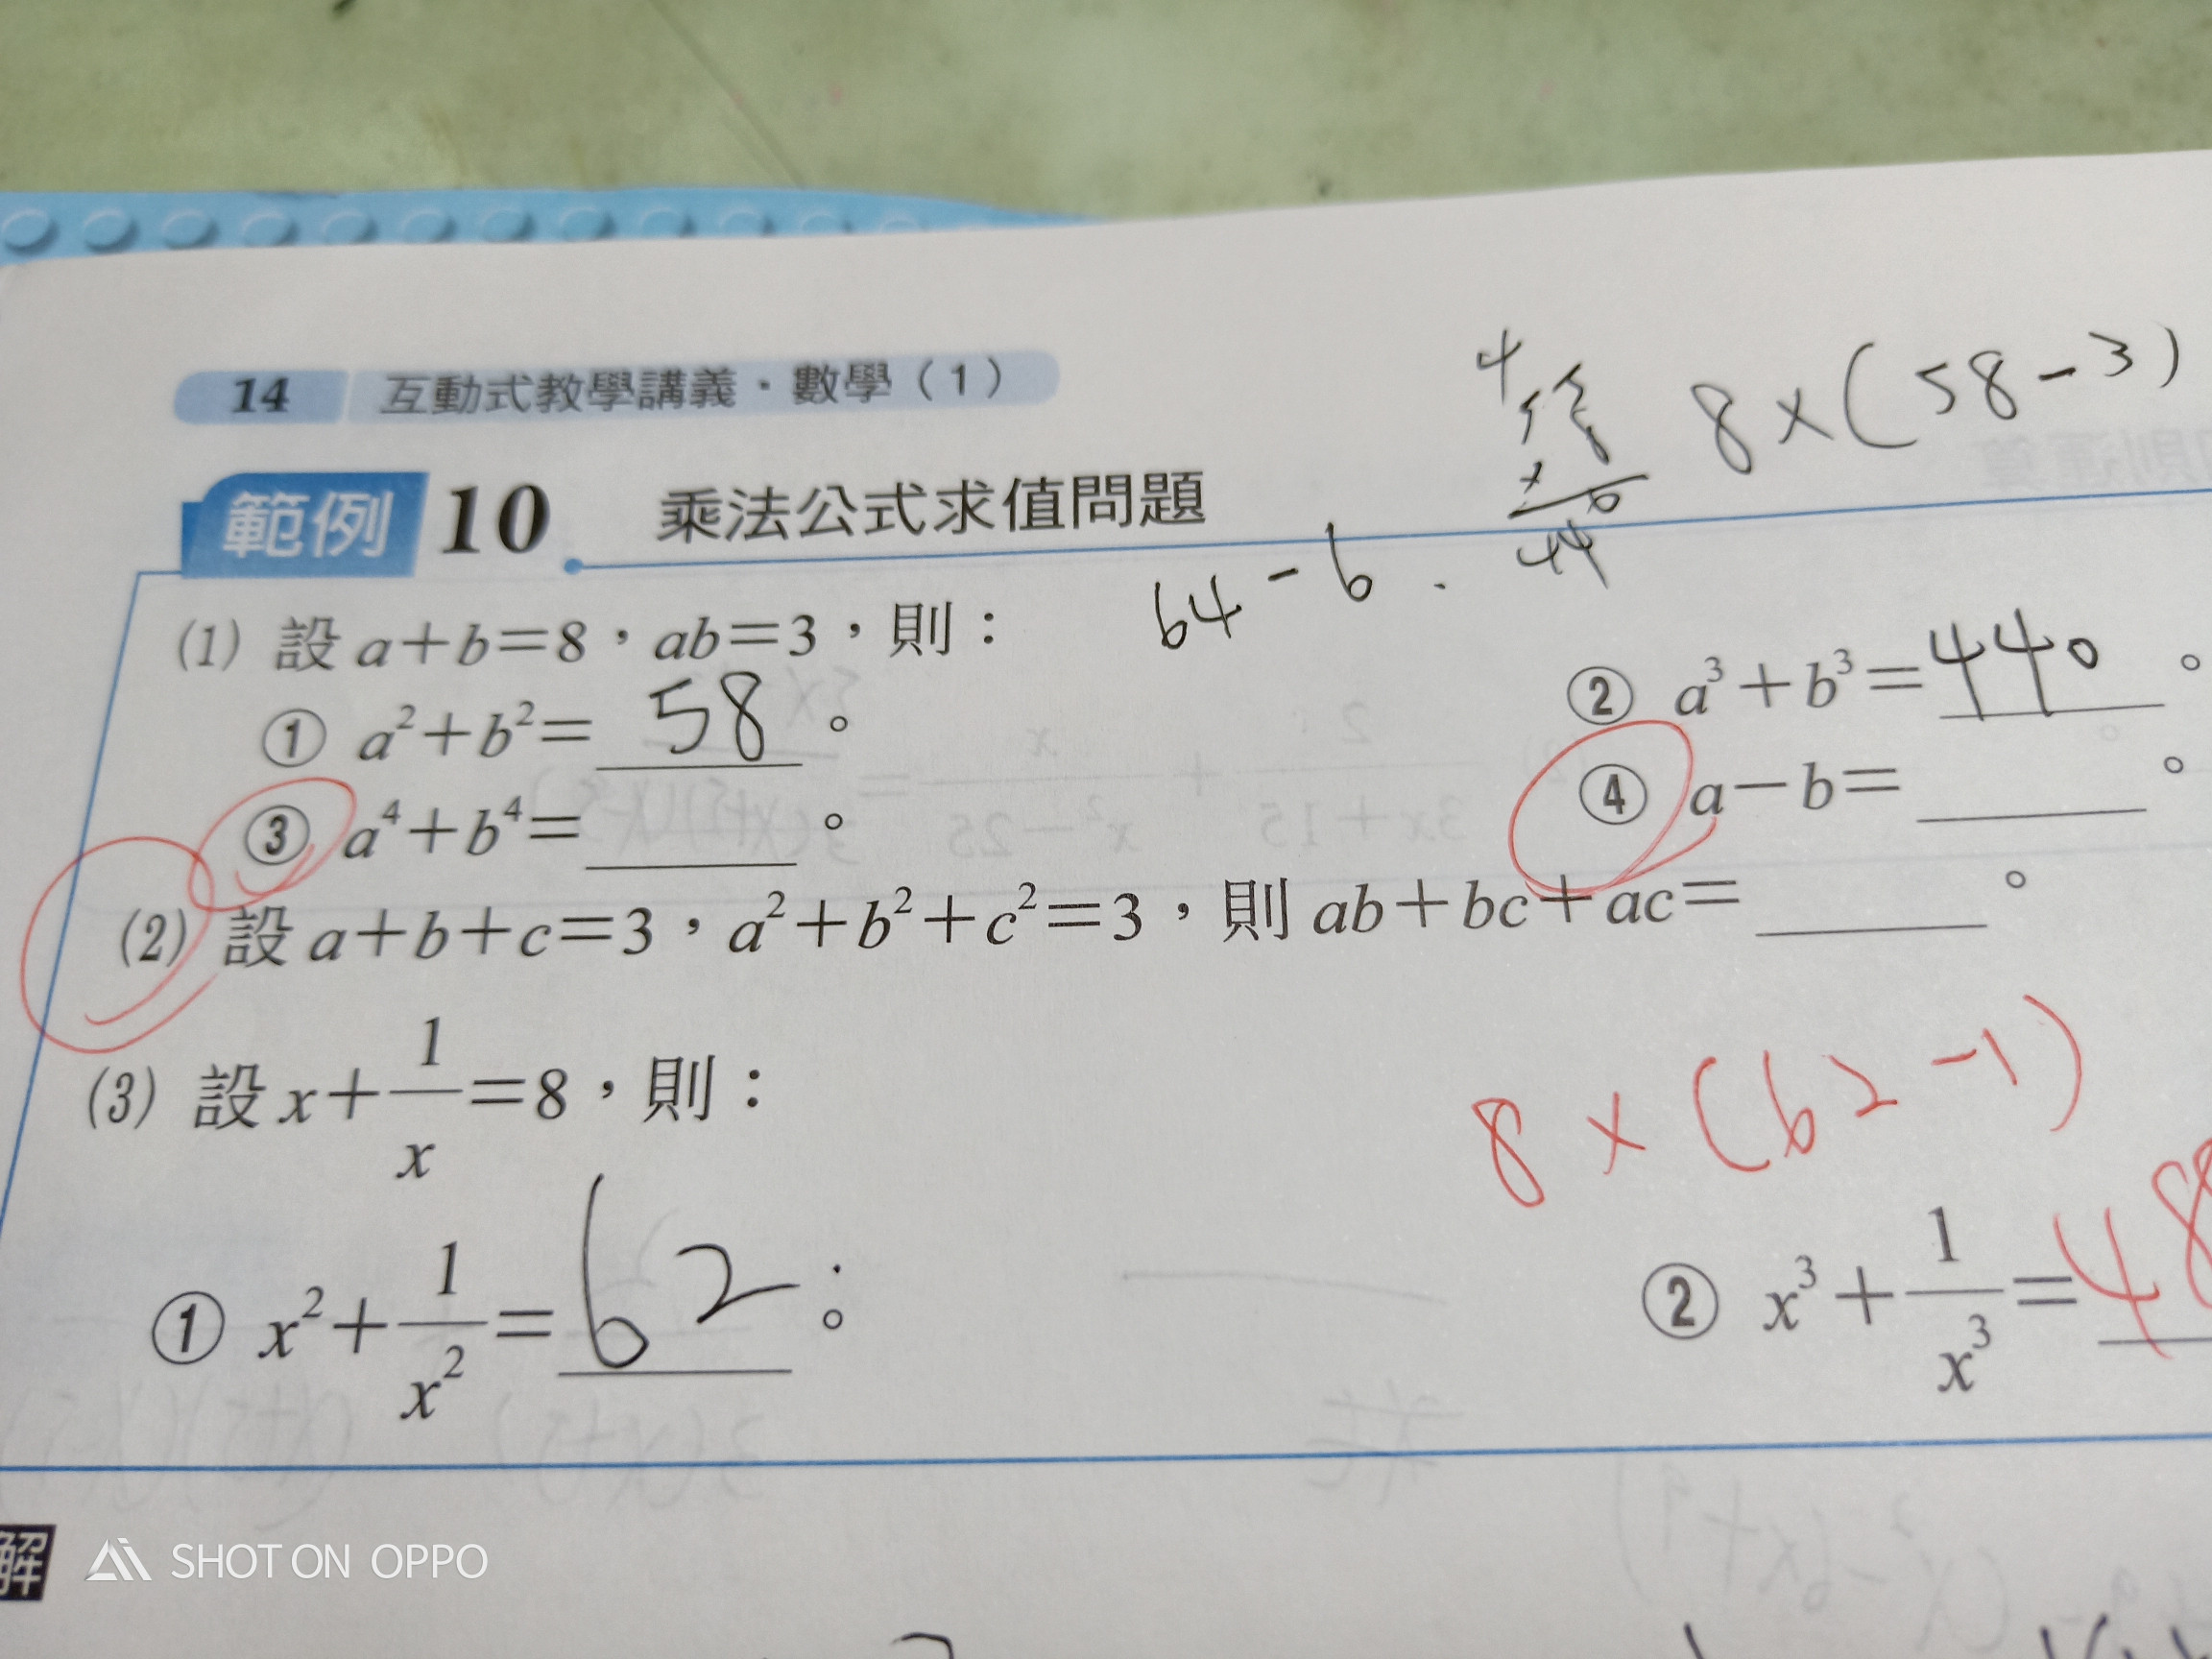 14 互動式教學講義・數學（1）
8×(58-3)
範例 10 乘法公式求值問題
64-6
44
(1) 設 a+b=8，ab=3，則：
① a²+b²=58。 ② a³+b³=440。
③ a⁴+b⁴=____。 ④ a-b=____。
(2) 設 a+b+c=3，a²+b²+c²=3，則 ab+bc+ac=____。
(3) 設 x+1/x=8，則：
8×(62-1)
① x²+1/x²=62。 ② x³+1/x³=48
解
SHOT ON OPPO